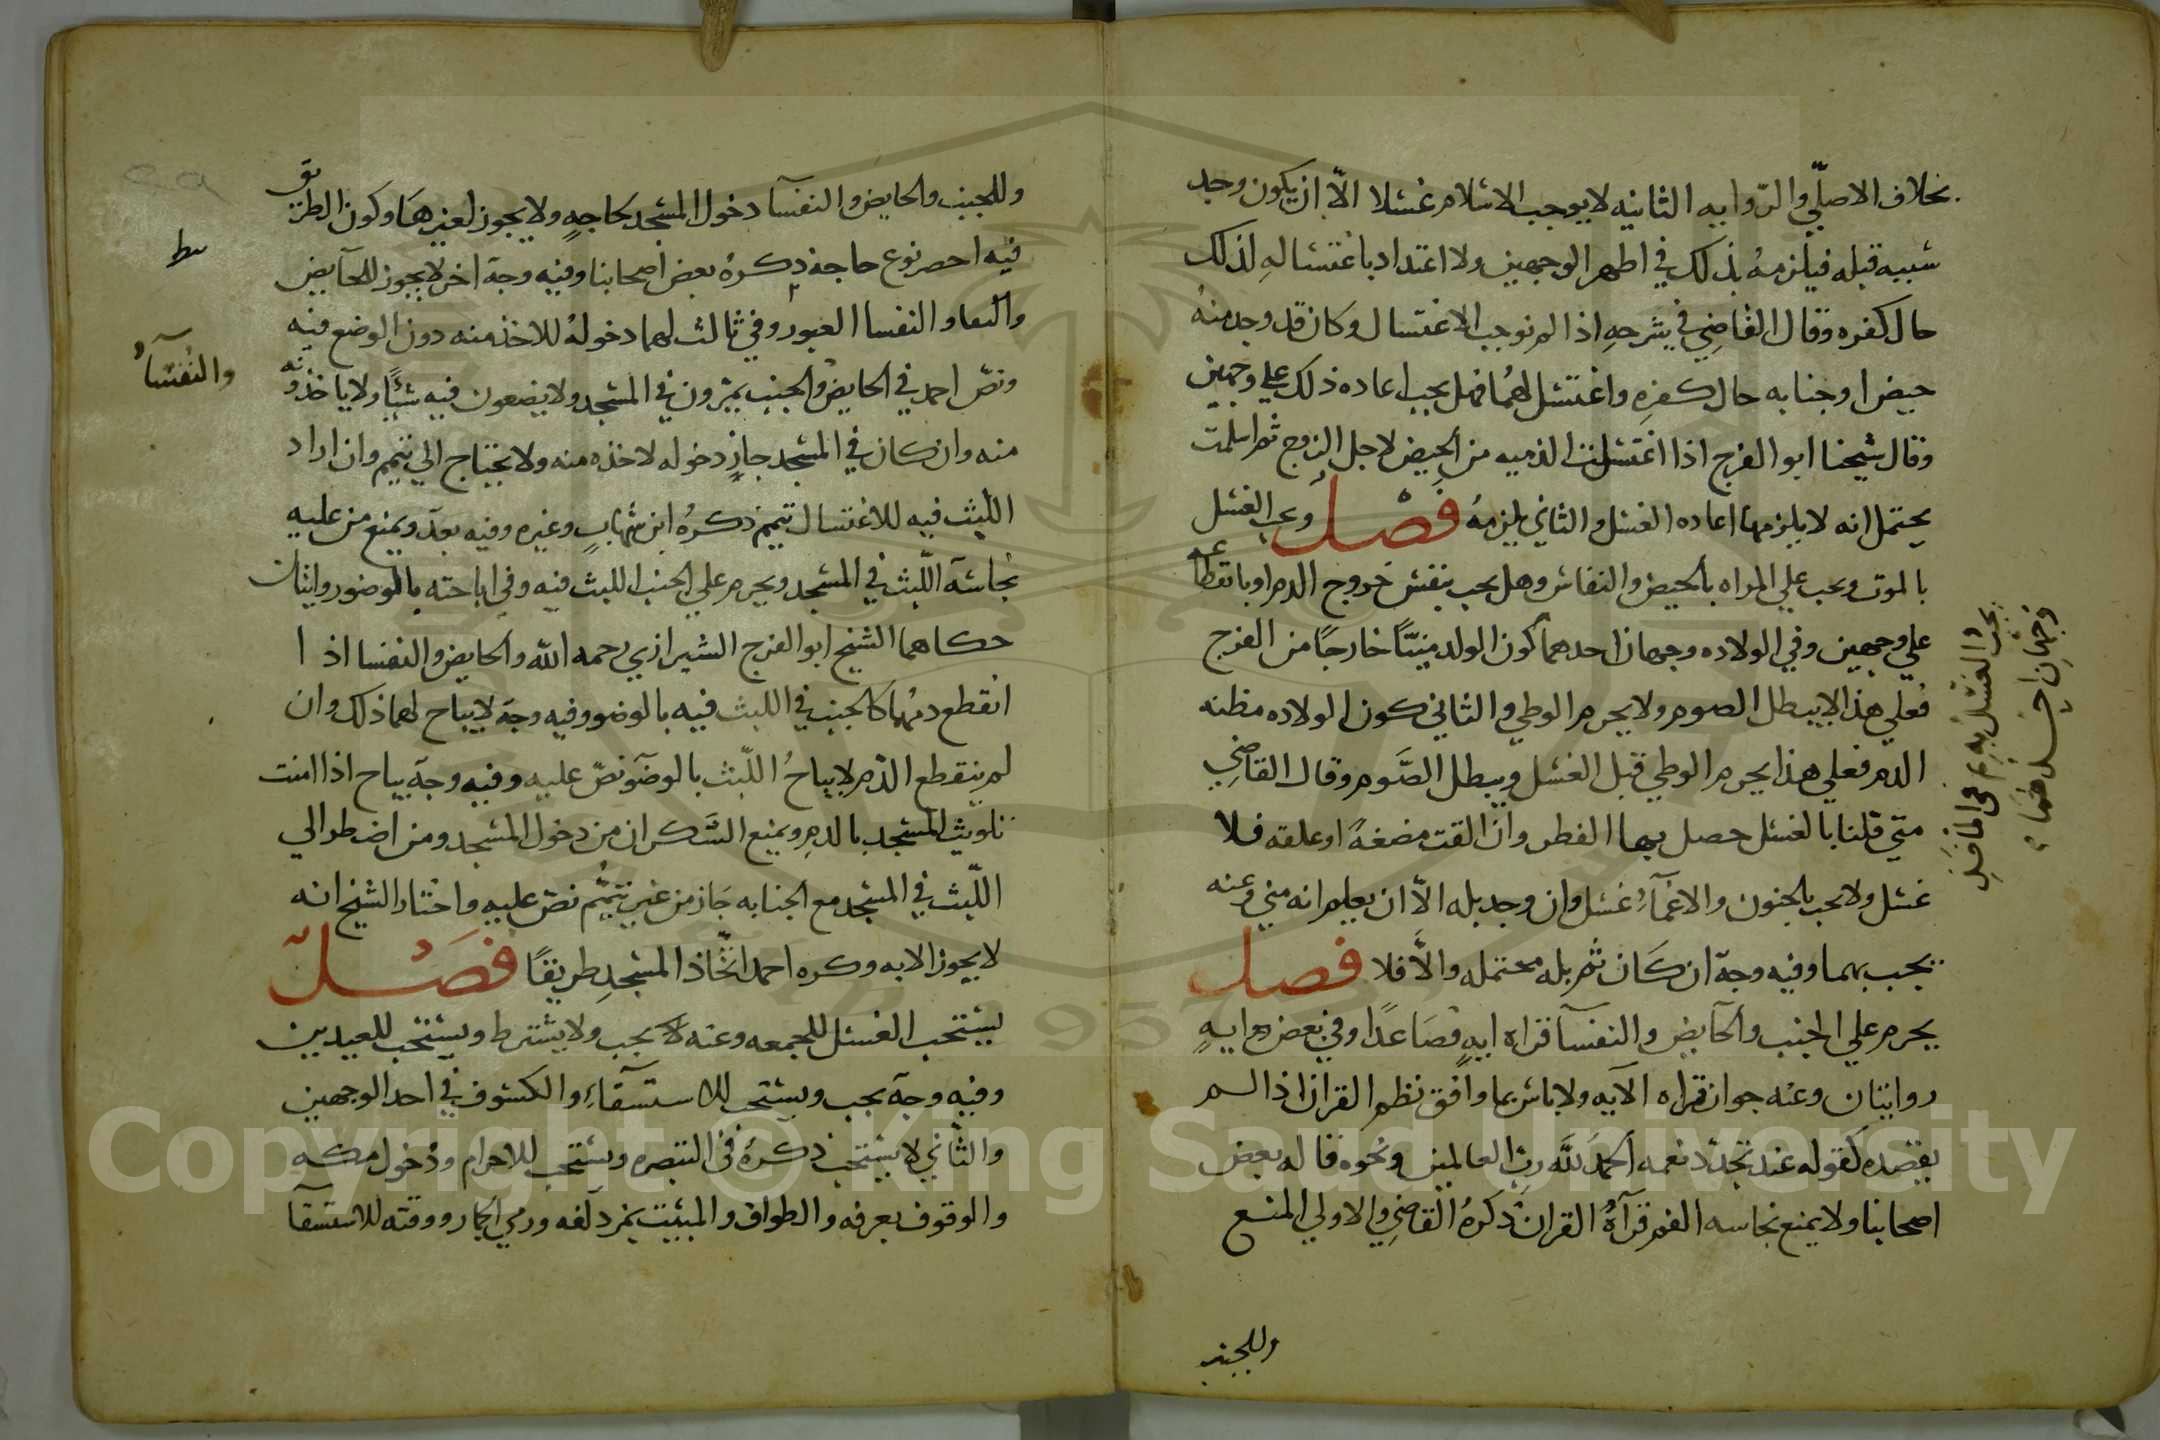 بخلاف الاصلي والروايه الثانيه لا يوجب الاسلام غسلا الا ان يكون وجد
سببه قبله فيلزمه بذلك في اظهر الوجهين ولا اعتداد باغتساله لذلك
حال كفره وقال القاضي في شرحه اذا لم نوجب الاغتسال وكان قد وجد منه
حيض او جنابه حال كفره واغتسل لهما فهل يجب اعاده ذلك علي وجهين
وقال شيخنا ابو الفرج اذا اغتسلت الذميه من الحيض لاجل الزوج ثم اسلمت
يحتمل انه لا يلزمها اعاده الغسل والثاني يلزمه فصل ويجب الغسل
بالموت ويجب علي المراه بالحيض والنفاس وهل يجب بنفس خروج الدم او بانقطاعه
علي وجهين وفي الولاده وجهان احدهما كون الولد منيا خارجا من الفرج
فعلي هذا لا يبطل الصوم ولا يحرم الوطي والثاني كون الولاده مظنه
الدم فعلي هذا يحرم الوطي قبل الغسل ويبطل الصوم وقال القاضي
متي قلنا بالغسل حصل بها الفطر وان القت مضغة او علقه فلا
غسل ولا يجب بالجنون والاغماء غسل وان وجد بله الا ان يعلم انه مني وعنه
يجب بهما وفيه وجه ان كان ثم بله محتمله والا فلا فصل
يحرم علي الجنب والحايض والنفسآ قراه ايه فصاعدا وفي بعض ايه
روايتان وعنه جواز قراه الآيه ولا باس بما وافق نظم القران اذا لم
يقصده كقوله عند تجدد نعمه الحمد لله رب العالمين ونحوه قاله بعض
اصحابنا ولا يمنع نجاسه الفم قرآة القران ذكره القاضي والاولي المنع
وللجنب
وللجنب والحايض والنفسآ دخول المسجد لحاجه ولا يجوز لغيرها وكون الطريق
فيه احصر نوع حاجة ذكره بعض اصحابنا وفيه وجه اخر لا يجوز للحايض
والنفسا العبور وفي ثالث لهما دخوله للاخذ منه دون الوضع فيه
ونص احمد في الحايض والجنب يمرون في المسجد ولا يضعون فيه شيئا ولا ياخذونه
والنفسآء
منه وان كان في المسجد جاز دخوله لاخذه منه ولا يحتاج الي تيمم وان اراد
اللبث فيه للاغتسال تيمم ذكره ابن شهاب وغيره وفيه بعد ويمنع من عليه
نجاسة اللبث في المسجد ويحرم علي الجنب اللبث فيه وفي اباحته بالوضو روايتان
حكاهما الشيخ ابو الفرج الشيرازي رحمه الله والحايض والنفسا اذا
انقطع دمهما كالجنب في اللبث فيه بالوضو وفيه وجه لا يباح لهما ذلك وان
لم ينقطع الدم لا يباح اللبث بالوضو نص عليه وفيه وجه يباح اذا امنت
تلويث المسجد بالدم ويمنع السكران من دخول المسجد ومن اضطر الي
اللبث في المسجد مع الجنابه جاز من غير تيمم نص عليه واختار الشيخ انه
لا يجوز الا به وكره احمد اتخاذ المسجد طريقا فصل
يستحب الغسل للجمعه وعنه يجب ولا يشترط ويستحب للعيدين
وفيه وجه يجب ويستحب للاستسقاء والكسوف في احد الوجهين
والثاني لا يستحب ذكره في التبصره ويستحب للاحرام ودخول مكه
والوقوف بعرفه والطواف والمبيت بمزدلفه ورمي الجمار ووقته للاستسقآ
Copyright © King Saud University
1957